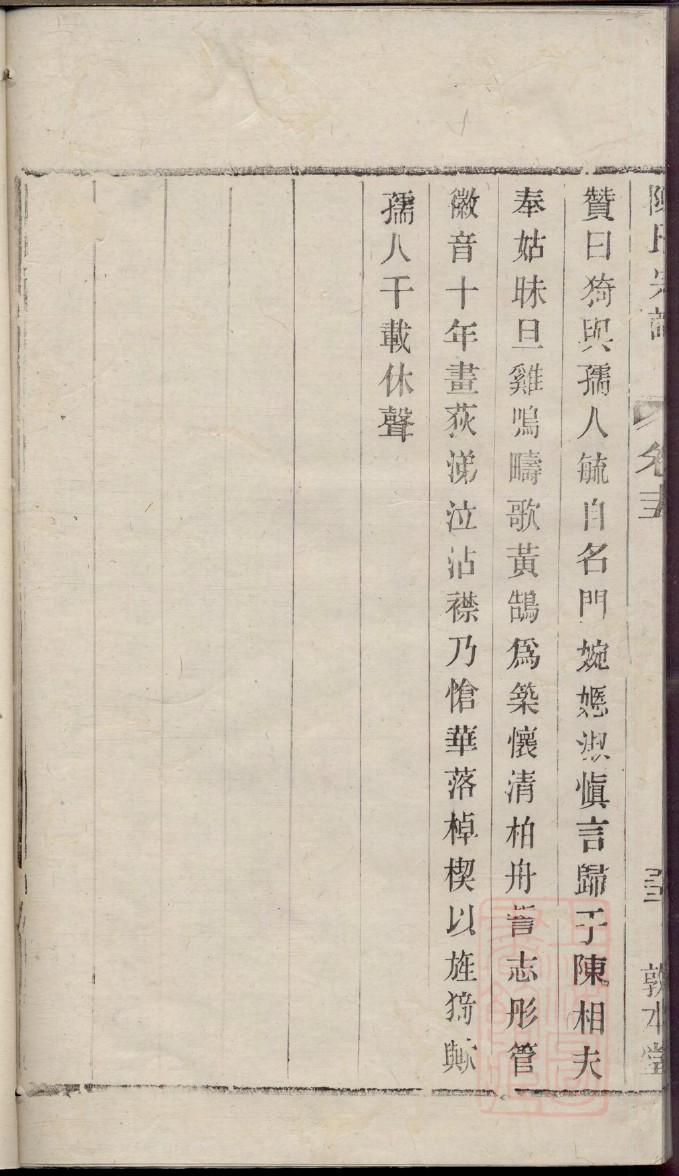 陳氏宗譜 卷十五 三三 敦本堂
贊曰猗與孺人毓自名門婉嫕淑慎言歸于陳相夫
奉姑昧旦雞鳴疇歌黃鵠爲築懷清柏舟誓志彤管
徽音十年畫荻涕泣沾襟乃愴華落棹楔以旌猗歟
孺人千載休聲